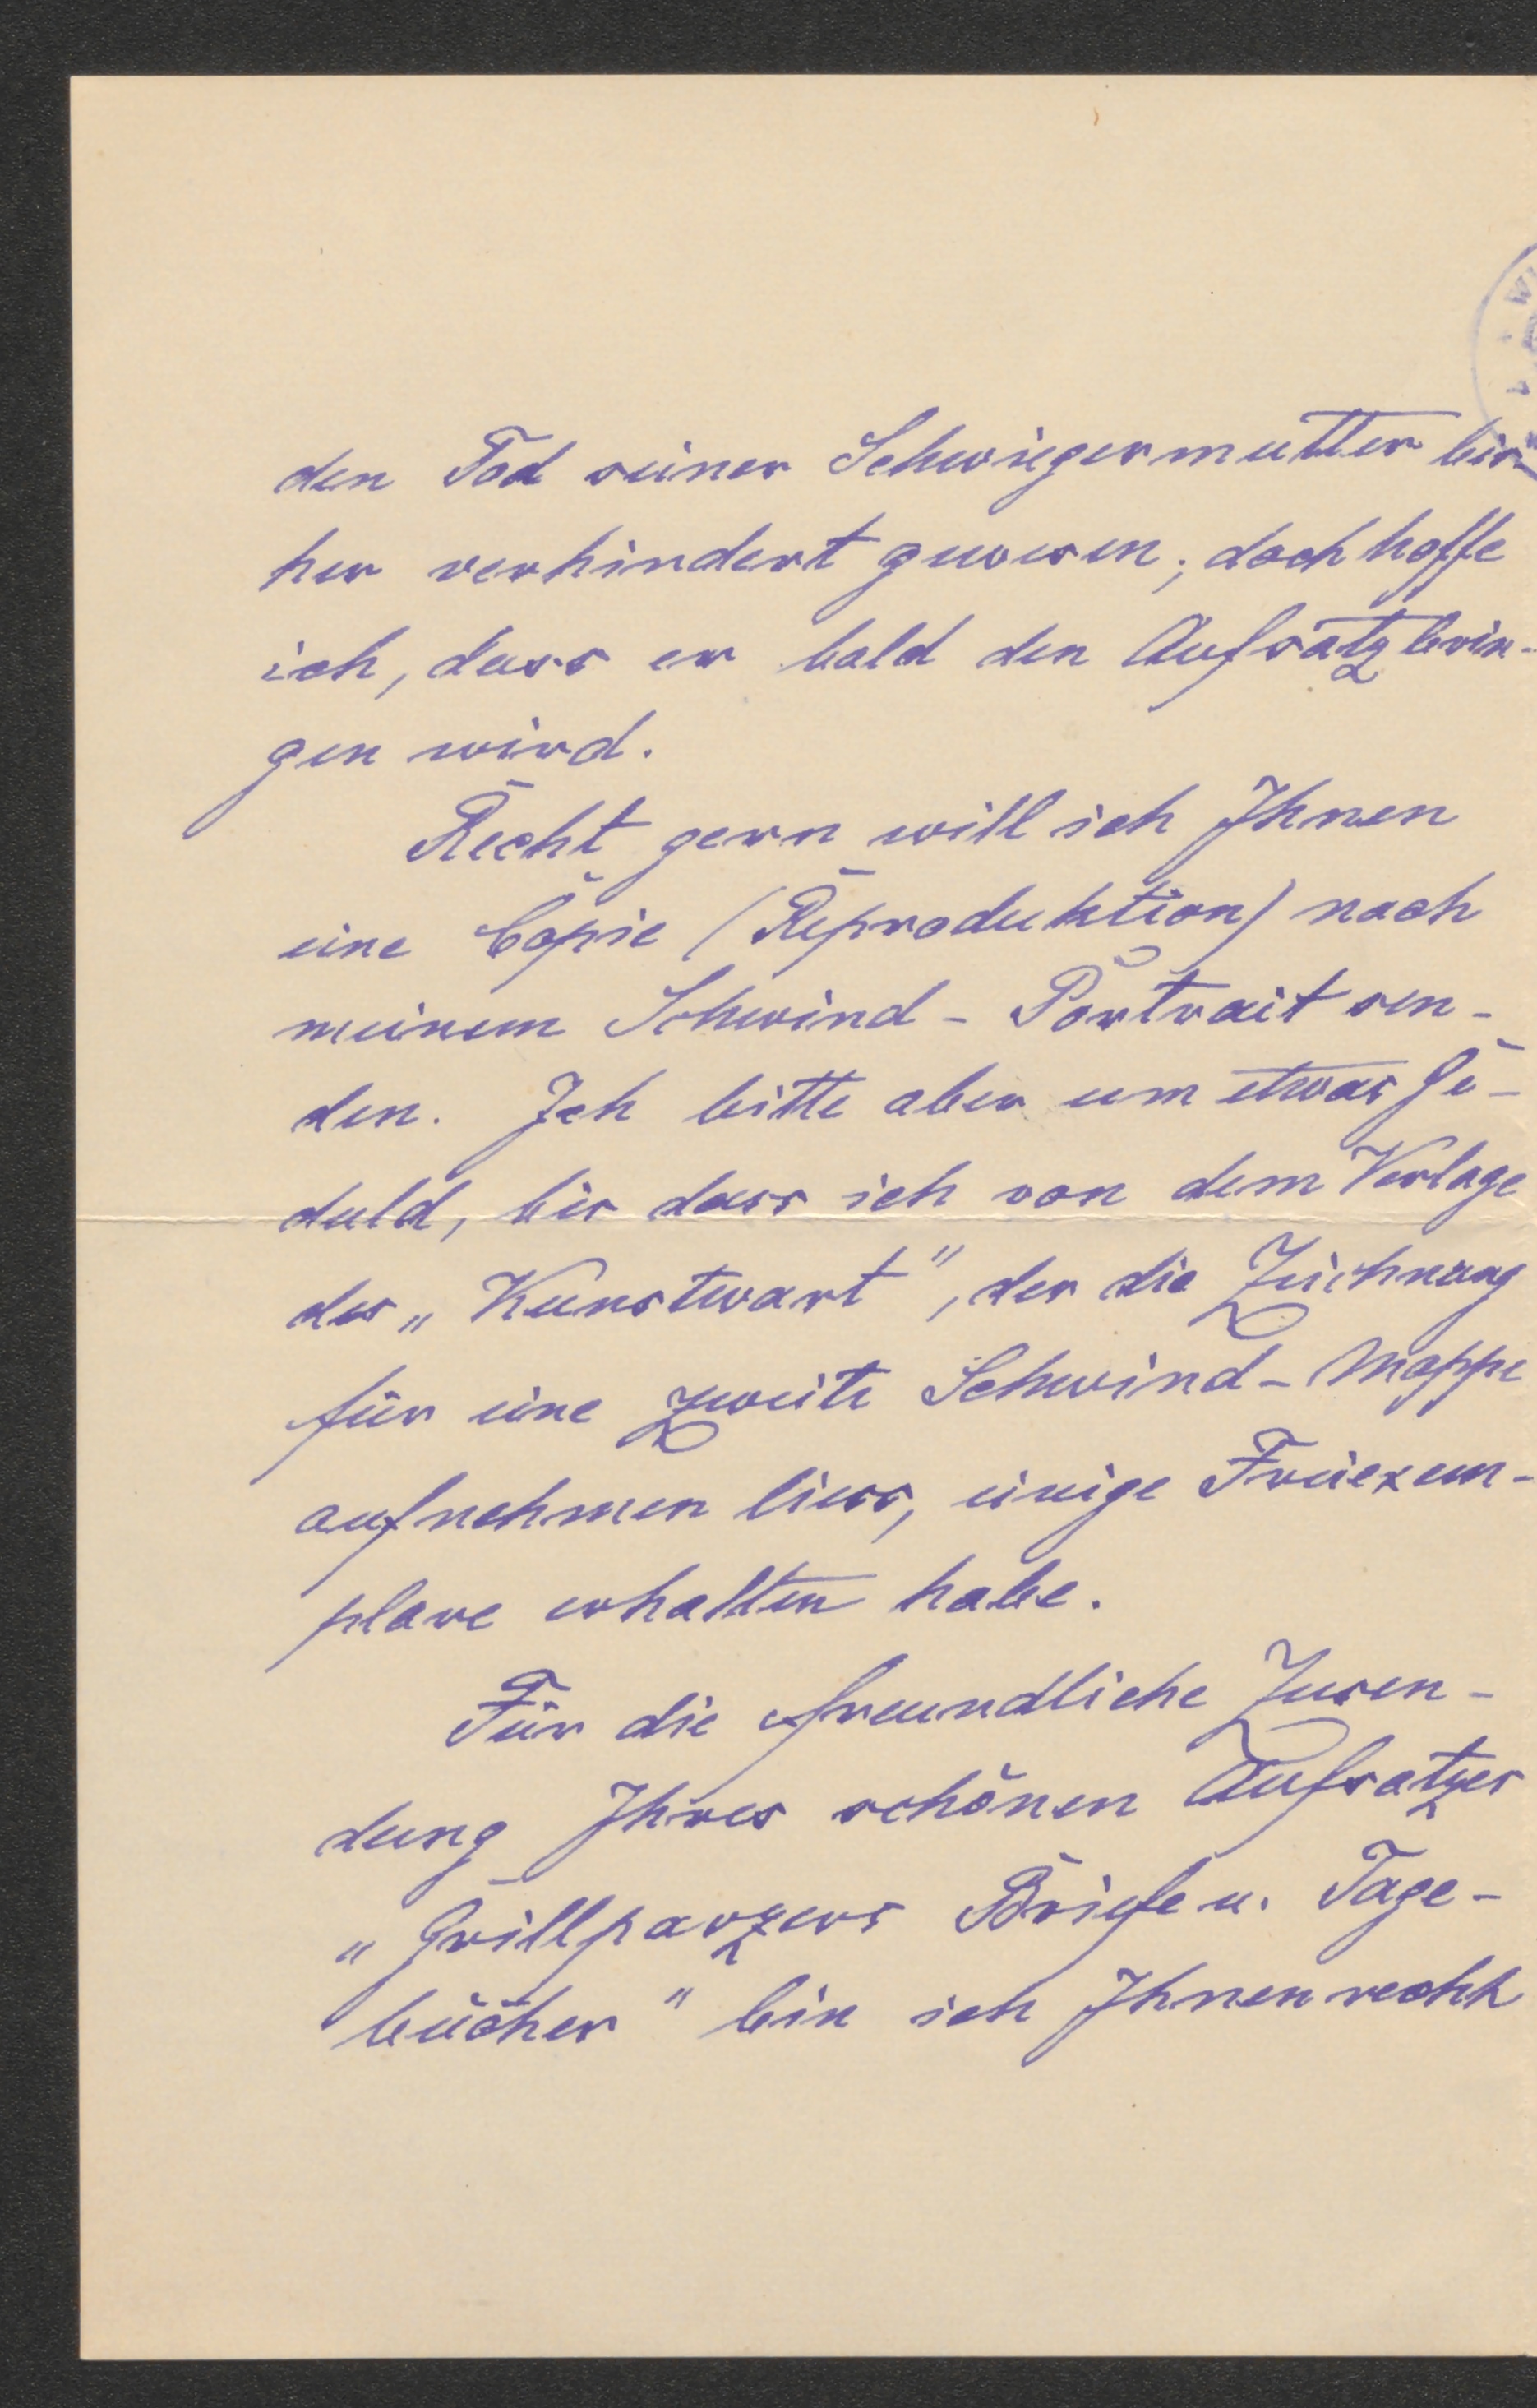 den Tod seiner Schwiegermutter bis-
her verhindert gewesen; doch hoffe
ich, dass er bald den Aufsatz brin-
gen wird.
Recht gern will ich Ihnen
eine Copie (Reproduktion) nach
meinem Schwind-Portrait sen-
den. Ich bitte aber um etwas Ge-
duld, bis dass ich von dem Verlage
des „Kunstwart", der die Zeichnung
für eine zweite Schwind-Mappe
aufnehmen liess, einige Freiexem-
plare erhalten habe.
Für die freundliche Zusen-
dung Ihres schönen Aufsatzes
„Grillparzers Briefe u. Tage-
bücher" bin ich Ihnen recht